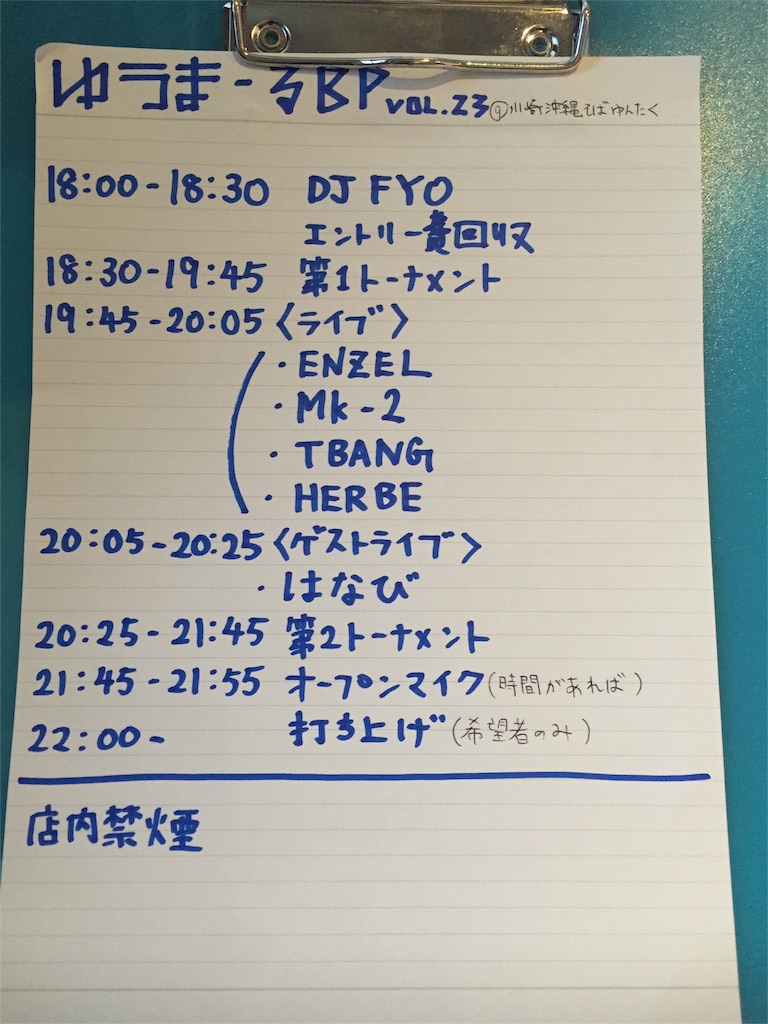 ゆうまーるBP VOL.23 @川崎沖縄そばゆんたく
18:00-18:30 DJ FYO
エントリー費回収
18:30-19:45 第1トーナメント
19:45-20:05 〈ライブ〉
・ENZEL
・Mk-2
・TBANG
・HERBE
20:05-20:25 〈ゲストライブ〉
・はなび
20:25-21:45 第2トーナメント
21:45-21:55 オープンマイク(時間があれば)
22:00- 打ち上げ(希望者のみ)
店内禁煙